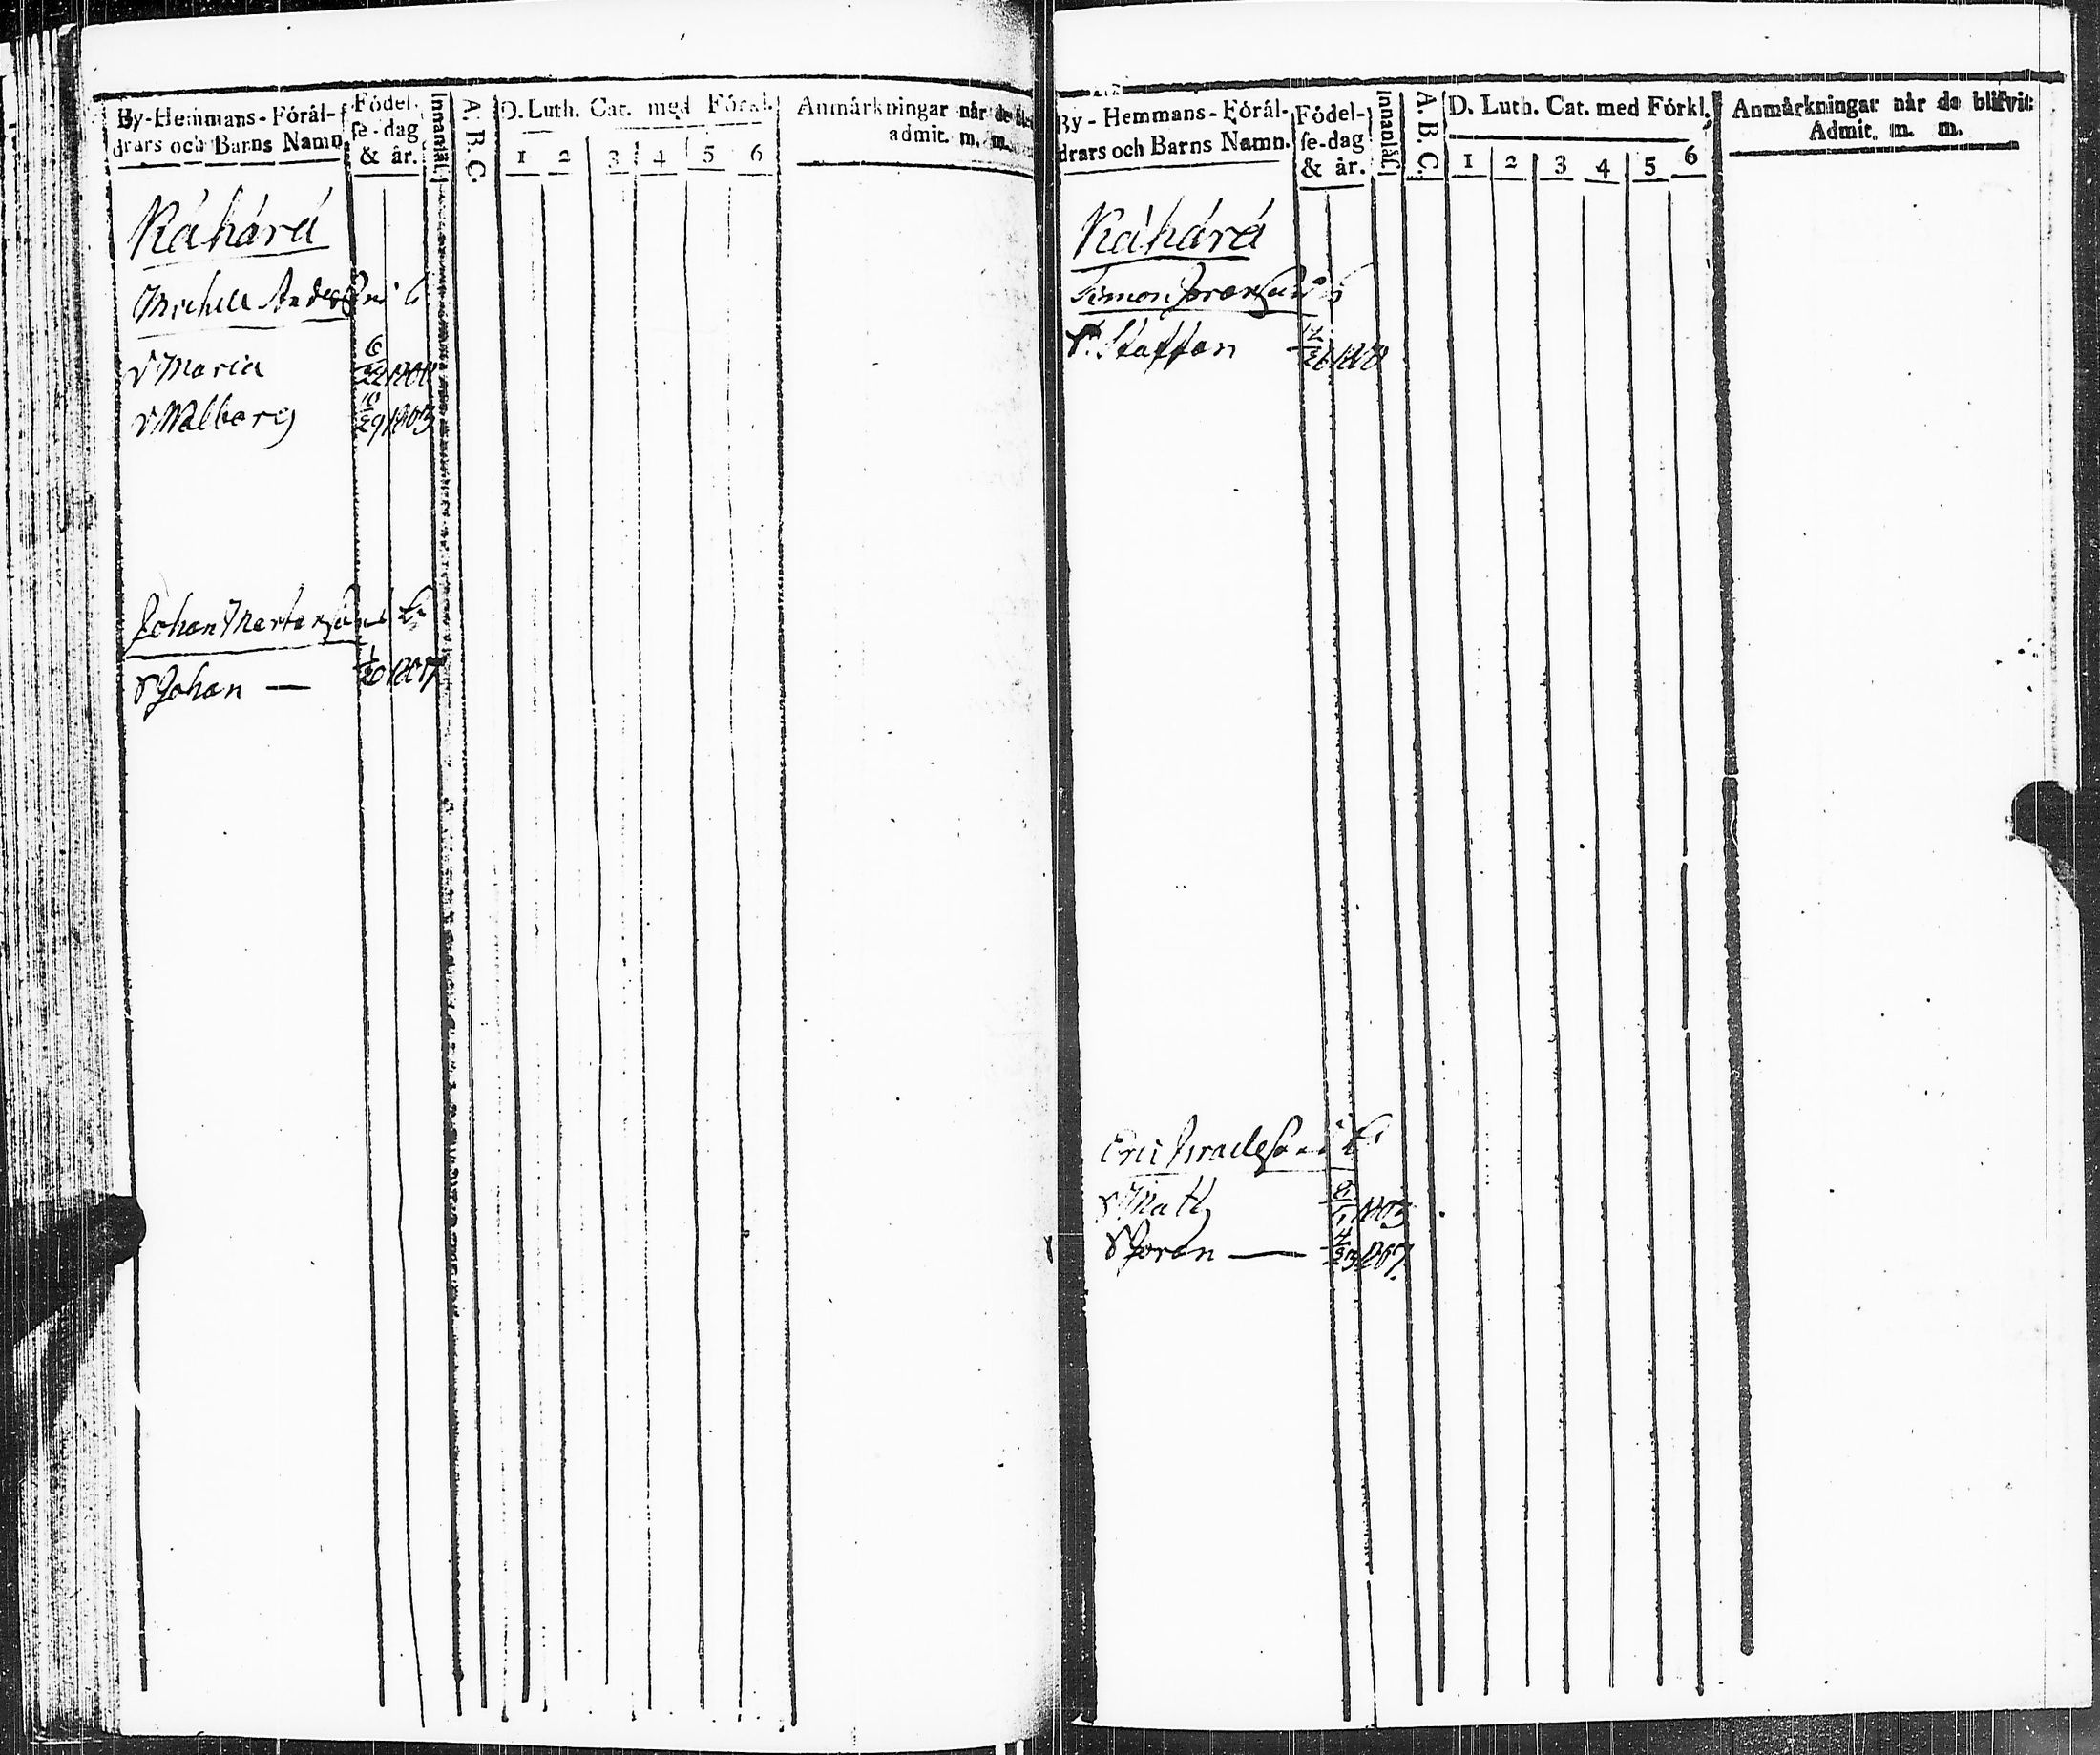 By-Hemmans-Förål-
drars och Barns Namn.
Födel-
se-dag
& år.
Innanläs.
A. B. C.
D. Luth. Cat. med Förkl.
1 2 3 4 5 6
Anmärkningar når de
admit. m. m.
Råhårå
Michell Anders
D Maria
D Walborg 10/29 1803
Johan Mertensons
S Johan — 1/20 1807
By-Hemmans-Förål-
drars och Barns Namn.
Födel-
se-dag
& år.
Innanläs.
A. B. C.
D. Luth. Cat. med Förkl.
1 2 3 4 5 6
Anmärkningar når de blifvit
Admit. m. m.
Råhårå
Simon Joransons
S. Staffan
Eric Israelsons
S Matts 1803
S Joran — 4/23 1807.